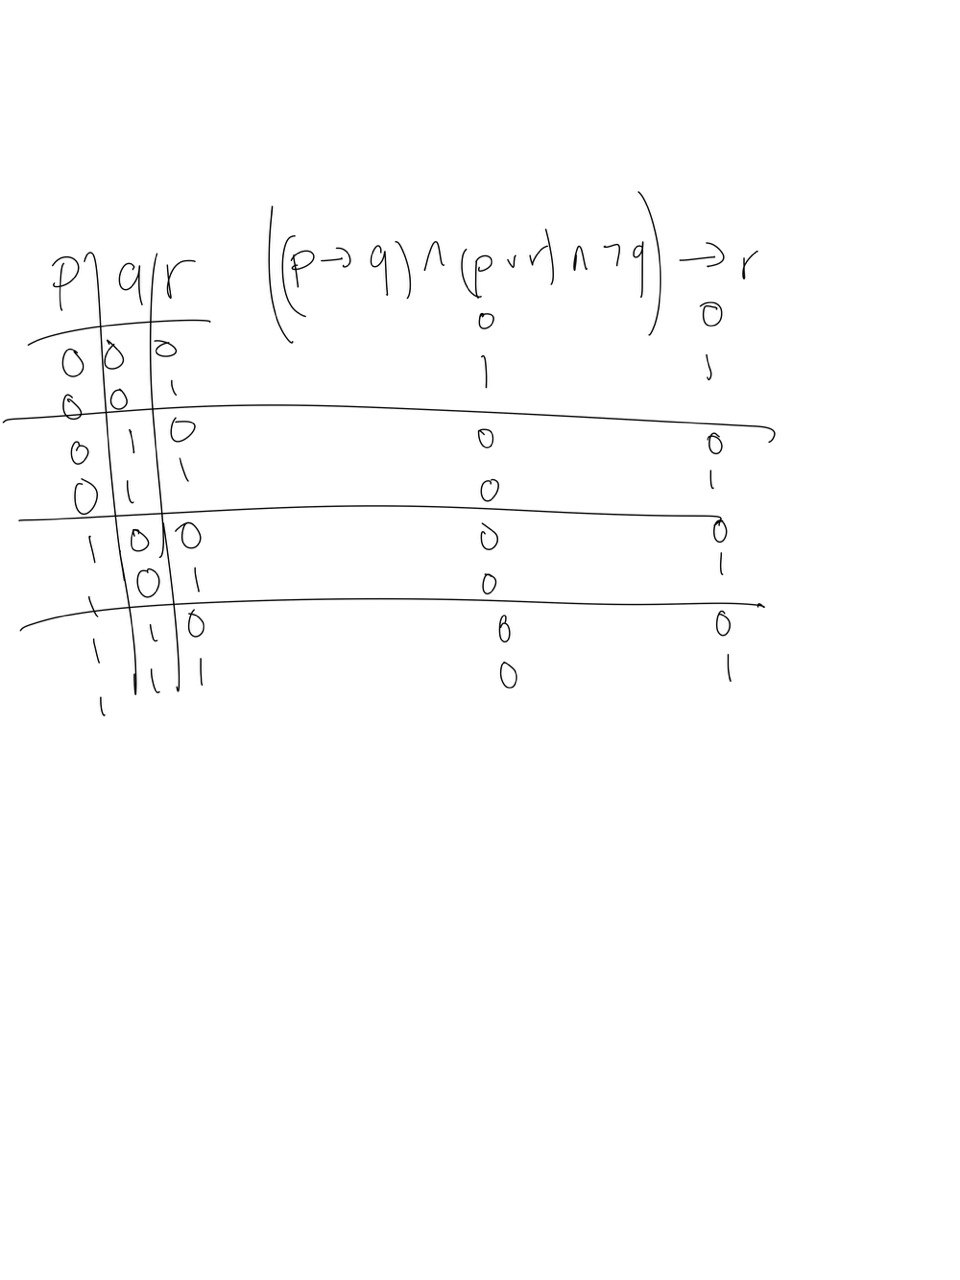 p q r ((p → q) ∧ (p ∨ r) ∧ ¬q) → r
0 0 0 0 0
0 0 1 1 1
0 1 0 0 0
0 1 1 0 1
1 0 0 0 0
1 0 1 0 1
1 1 0 0 0
1 1 1 0 1